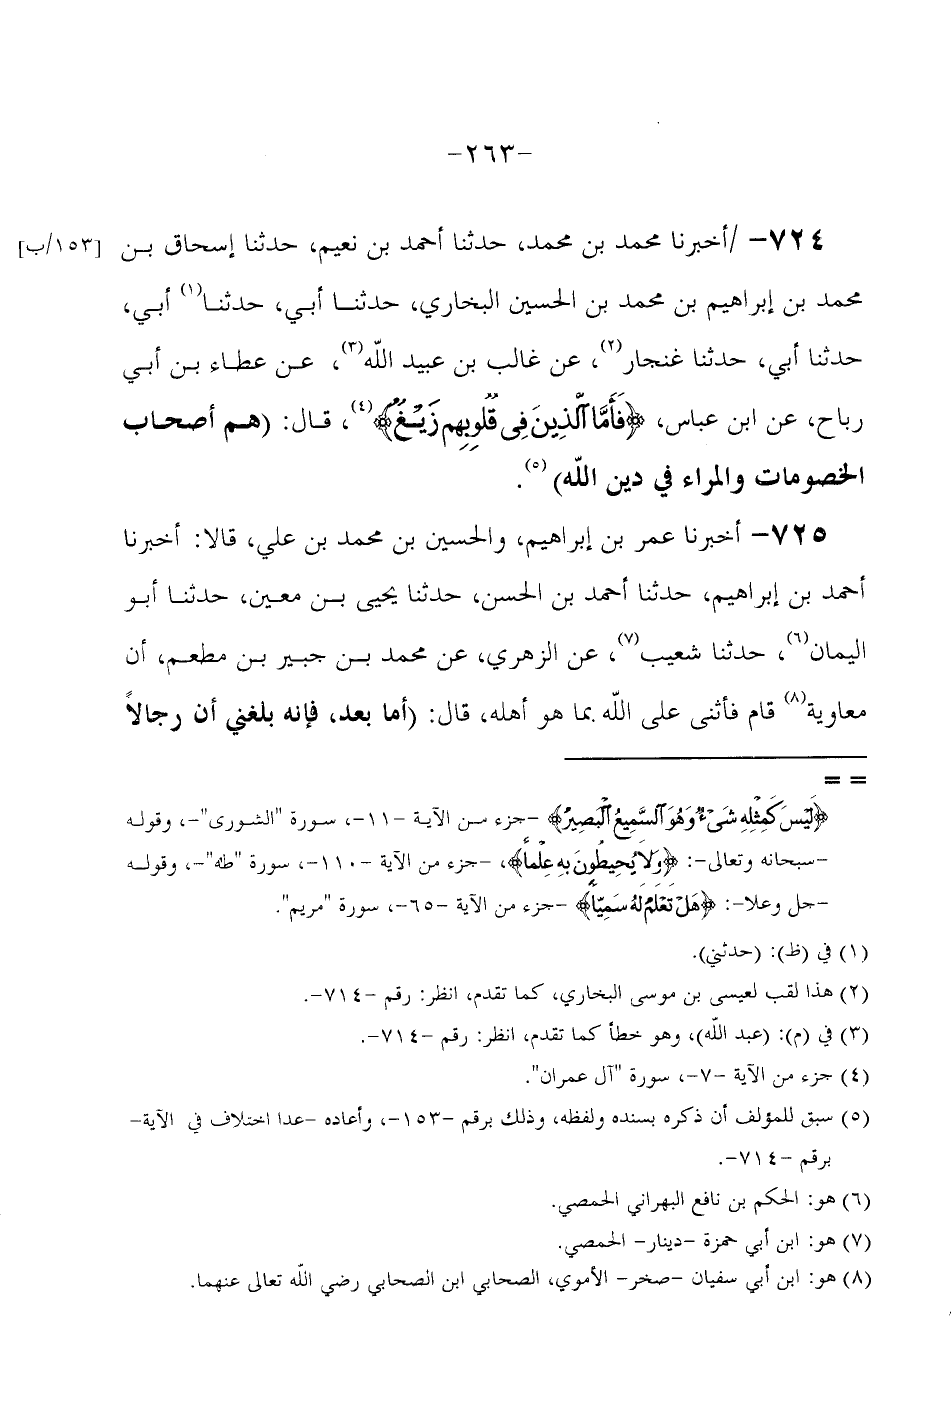 -٢٦٣-
٧٢٤- /أخبرنا محمد بن محمد، حدثنا أحمد بن نعيم، حدثنا إسحاق بـن [١٥٣/ب]
محمد بن إبراهيم بن محمد بن الحسين البخاري، حدثنـا أبي، حدثنـا(١) أبي،
حدثنا أبي، حدثنا غنجار(٢)، عن غالب بن عبيد الله(٣)، عـن عطـاء بـن أبـي
رباح، عن ابن عباس، ﴿فَأَمَّا الَّذِينَ فِي قُلُوبِهِمْ زَيْغٌ﴾(٤)، قـال: (هـم أصحـاب
الخصومات والمراء في دين الله)(٥).
٧٢٥- أخبرنا عمر بن إبراهيم، والحسين بن محمد بن علي، قالا: أخبرنا
أحمد بن إبراهيم، حدثنا أحمد بن الحسن، حدثنا يحيى بـن معـين، حدثنـا أبـو
اليمان(٦)، حدثنا شعيب(٧)، عن الزهري، عن محمد بـن جبـير بـن مطعـم، أن
معاوية(٨) قام فأثنى على الله بما هو أهله، قال: (أما بعد، فإنه بلغني أن رجالاً
= =
﴿لَيْسَ كَمِثْلِهِ شَيْءٌ وَهُوَ السَّمِيعُ الْبَصِيرُ﴾ -جزء مـن الآيـة -١١-، سـورة "الشورى"-، وقولـه
-سبحانه وتعالى-: ﴿وَلَا يُحِيطُونَ بِهِ عِلْمًا﴾، -جزء من الآية -١١٠-، سورة "طه"-، وقولـه
-جل وعلا-: ﴿هَلْ تَعْلَمُ لَهُ سَمِيًّا﴾ -جزء من الآية -٦٥-، سورة "مريم".
(١) في (ظ): (حدثني).
(٢) هذا لقب لعيسى بن موسى البخاري، كما تقدم، انظر: رقم -٧١٤-.
(٣) في (م): (عبد الله)، وهو خطأ كما تقدم، انظر: رقم -٧١٤-.
(٤) جزء من الآية -٧-، سورة "آل عمران".
(٥) سبق للمؤلف أن ذكره بسنده ولفظه، وذلك برقم -١٥٣-، وأعاده -عدا اختلاف في الآية-
برقم -٧١٤-.
(٦) هو: الحكم بن نافع البهراني الحمصي.
(٧) هو: ابن أبي حمزة -دينار- الحمصي.
(٨) هو: ابن أبي سفيان -صخر- الأموي، الصحابي ابن الصحابي رضي الله تعالى عنهما.